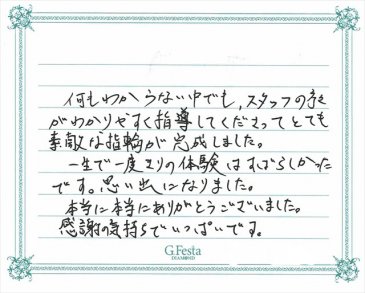 何もわからない中でも、スタッフの方
がわかりやすく指導してくださってとても
素敵な指輪が完成しました。
一生で一度きりの体験はすばらしかった
です。思い出になりました。
本当に本当にありがとうございました。
感謝の気持ちでいっぱいです。
G.Festa
DIAMOND